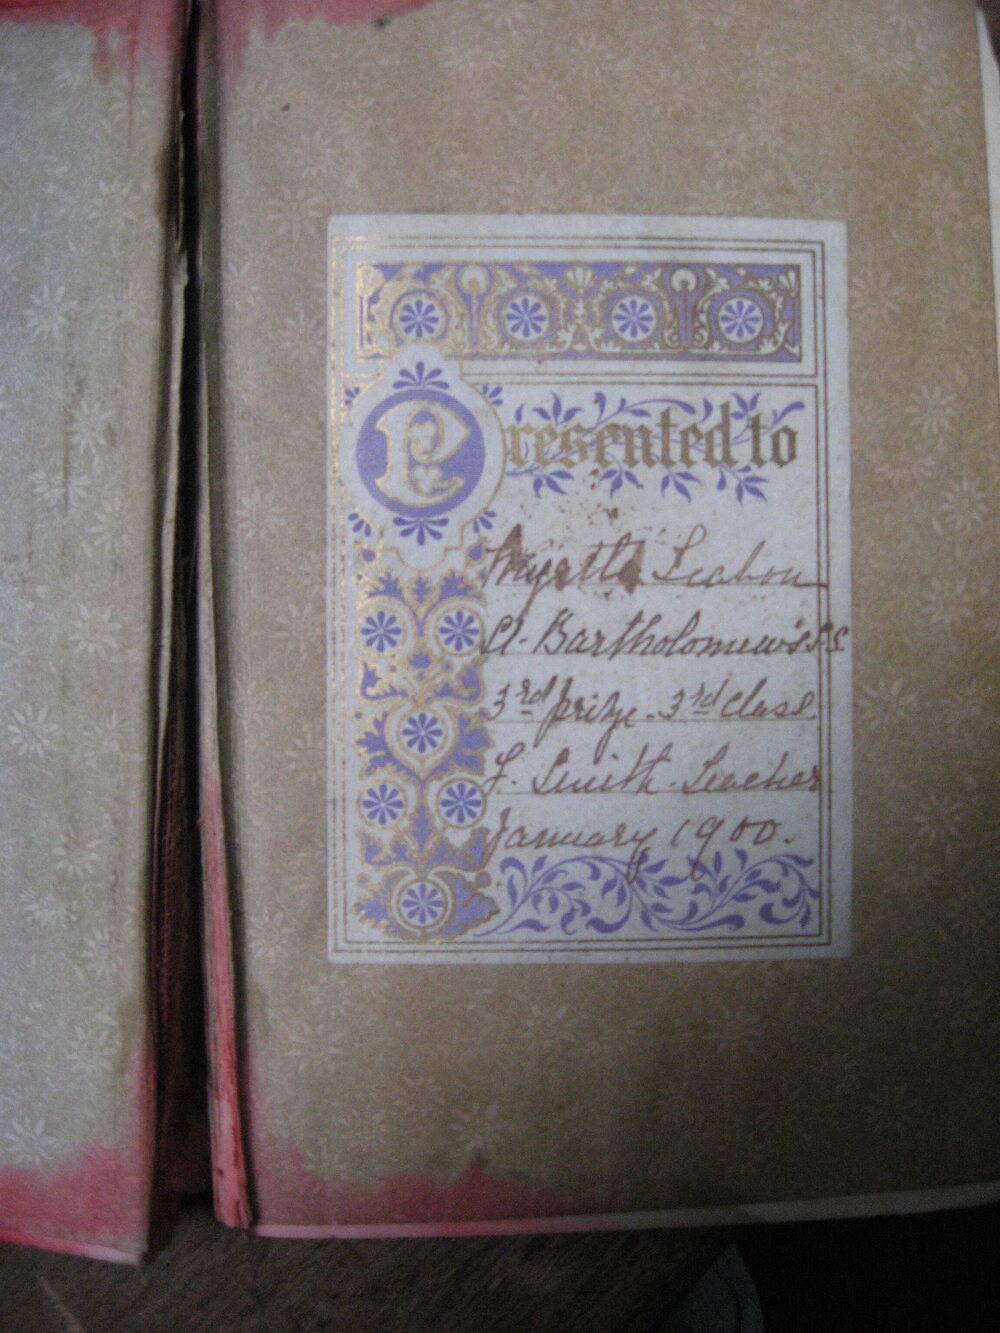 Presented to
Myrtle Leabon
St. Bartholomew's S.S.
3rd prize. 3rd class
F. Smith. Teacher
January 1900.